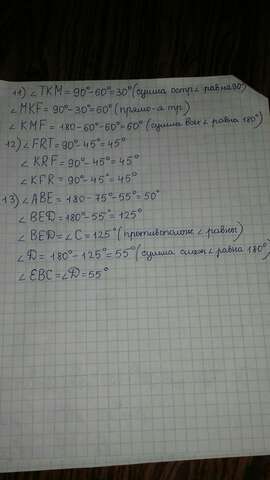 11) ∠TKM = 90°-60°=30° (сумма остр ∠ равна 90°)
∠MKF = 90°-30°=60° (прямо-й тр.)
∠KMF = 180-60°-60°=60° (сумма всех ∠ равна 180°)
12) ∠FRT = 90°-45°=45°
∠KRF = 90°-45°=45°
∠KFR = 90°-45°=45°
13) ∠ABE = 180-75°-55°=50°
∠BED = 180°-55°=125°
∠BED = ∠C = 125° (противополож ∠ равны)
∠D = 180°-125°=55° (сумма смеж ∠ равна 180°)
∠EBC = ∠D = 55°